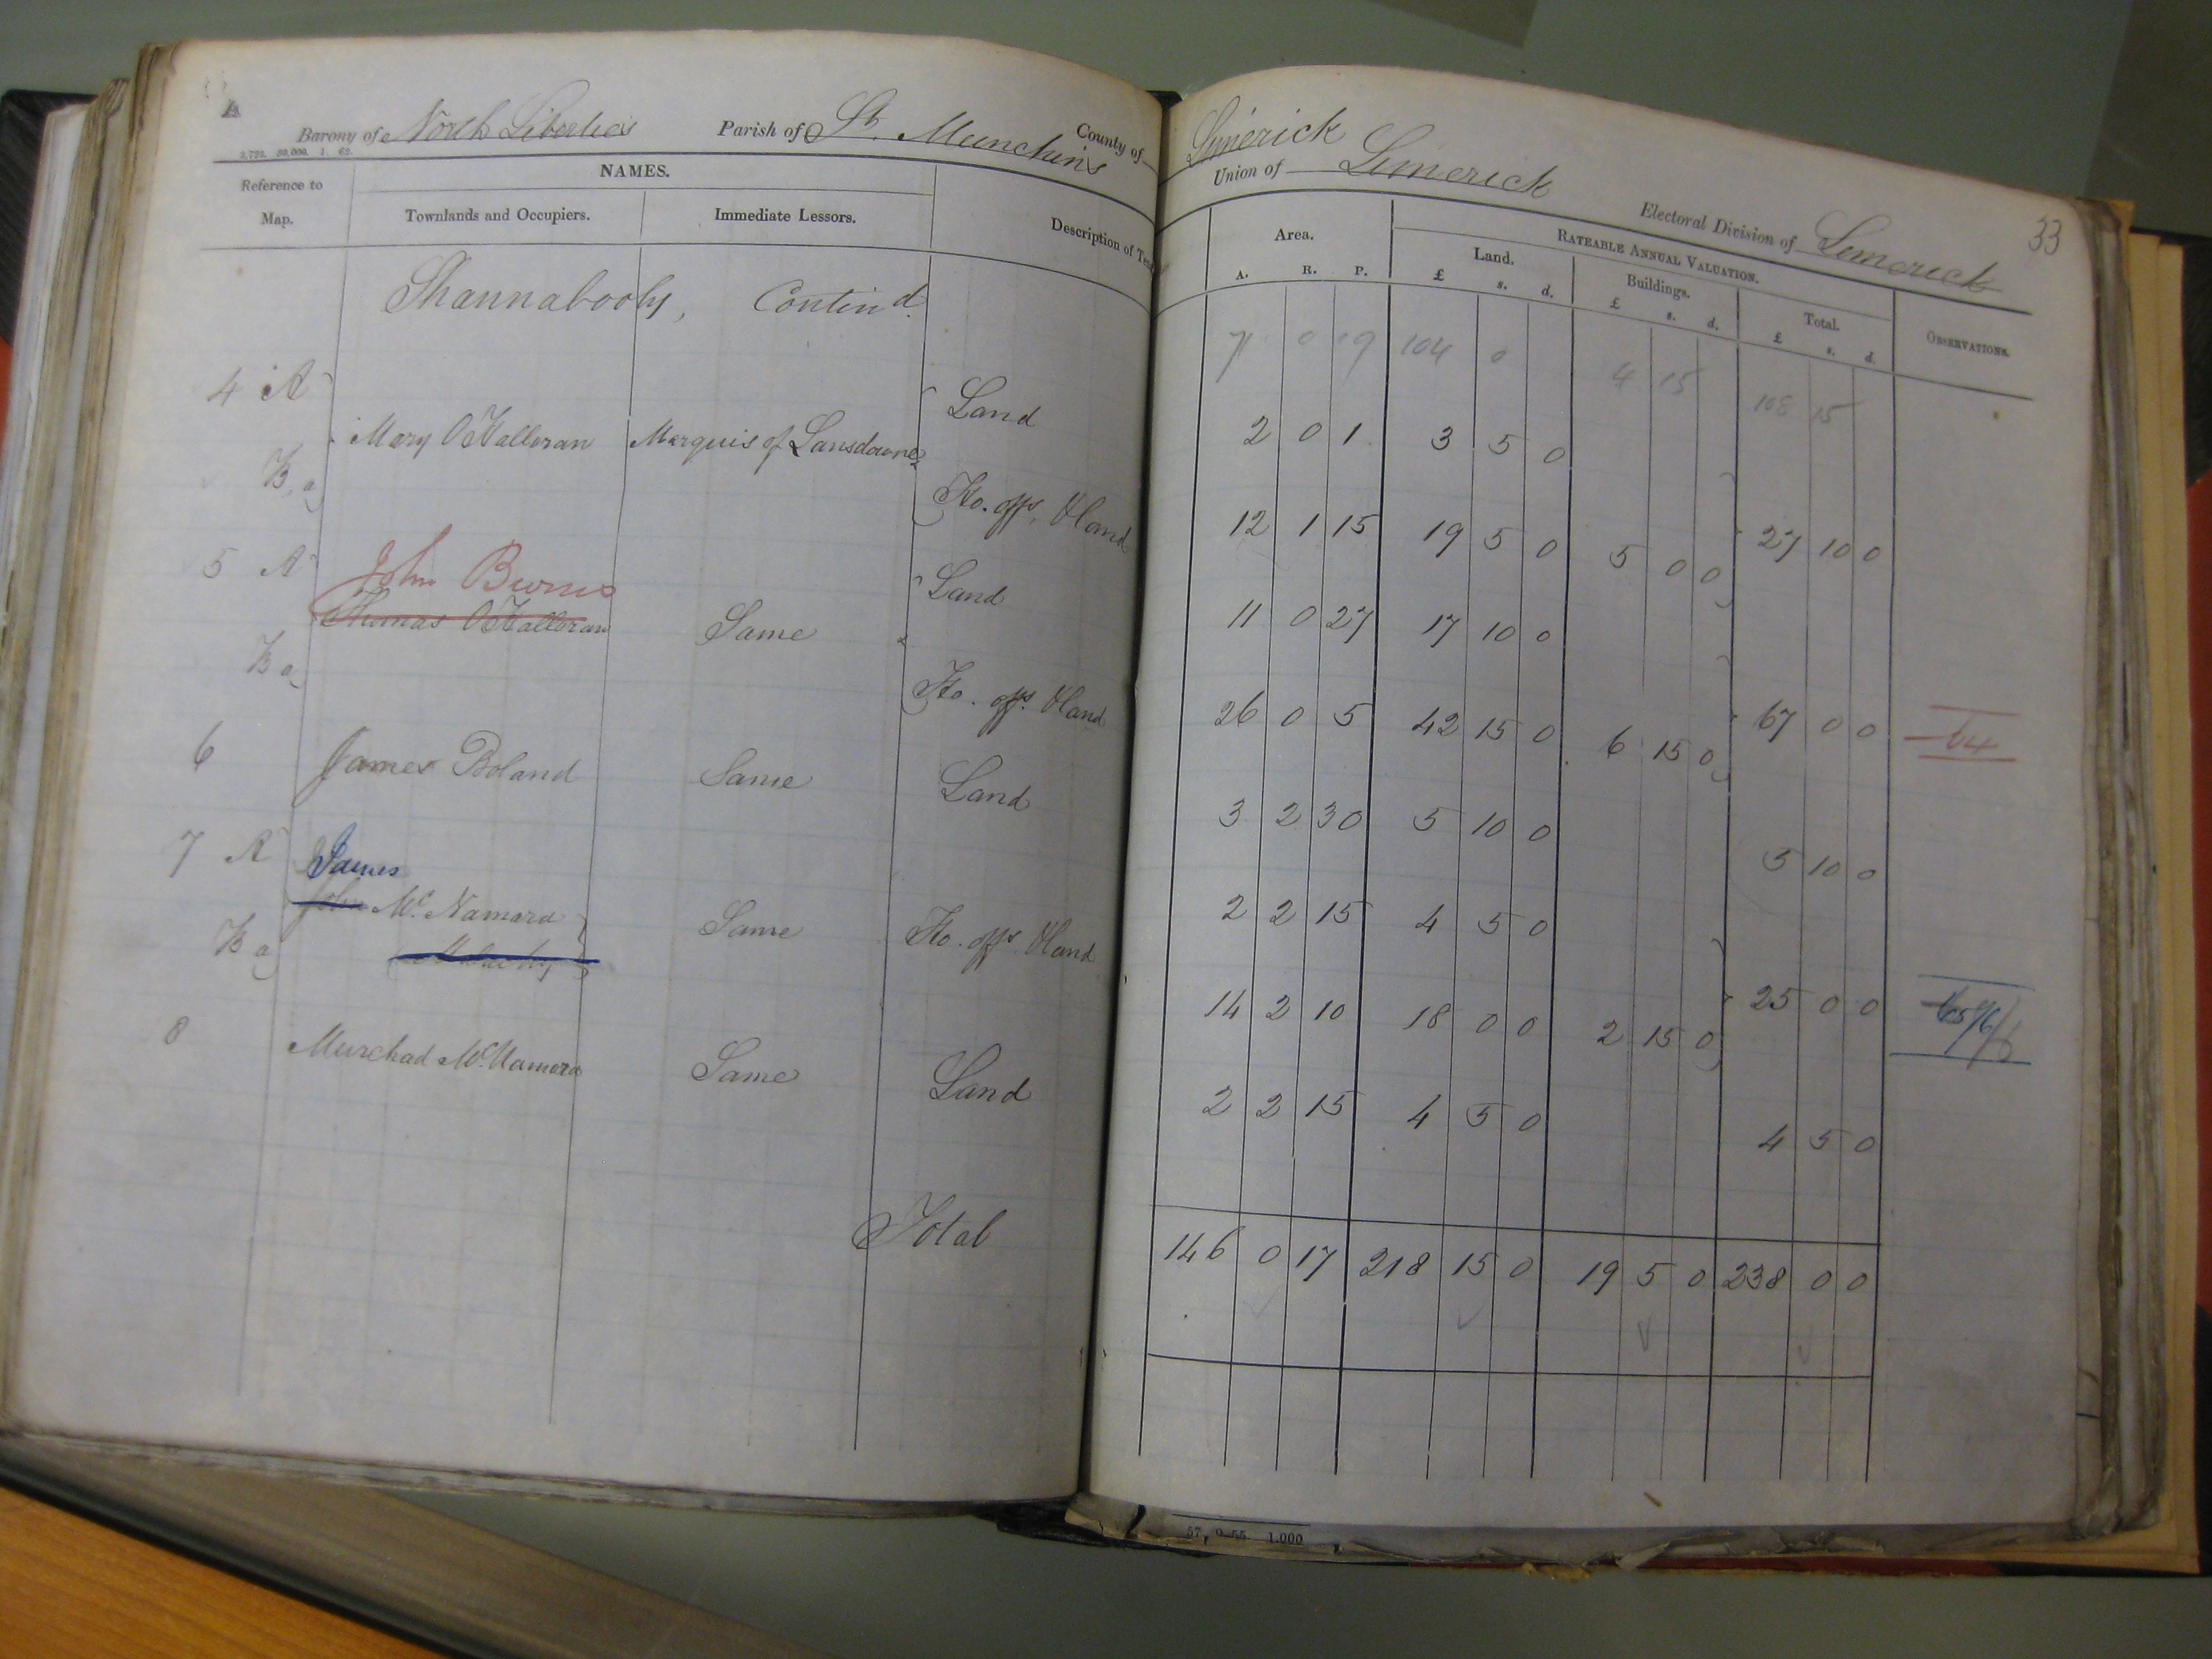 Barony of North Liberties Parish of St. Munchin's County of Limerick
Union of Limerick Electoral Division of Limerick 33
3,792. 30,000. 1. 62.
Reference to Map. NAMES. Description of Ten Area. RATEABLE ANNUAL VALUATION. OBSERVATIONS.
Townlands and Occupiers. Immediate Lessors. Land. Buildings. Total.
A. R. P. £ s. d. £ s. d. £ s. d.
Shannabooly, Contind.
71 0 19 104 0 4 15 108 15
4 A Land 2 0 1 3 5 0
Mary O'Halloran Marquis of Lansdowne
B a Ho. offs. & land 12 1 15 19 5 0 5 0 0 27 10 0
5 A John Burns Land 11 0 27 17 10 0
Thomas O'Halloran Same
B a Ho. offs. & land 26 0 5 42 15 0 6 15 0 67 0 0 64
6 James Boland Same Land 3 2 30 5 10 0 5 10 0
7 A James 2 2 15 4 5 0
John McNamara Same Ho. offs. & land
B a 14 2 10 18 0 0 2 15 0 25 0 0
8 Murchad McNamara Same Land 2 2 15 4 5 0 4 5 0
Total 146 0 17 218 15 0 19 5 0 238 0 0
57, 9-55 1.000